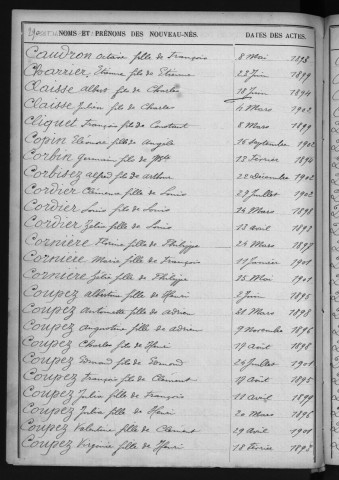 NOMS ET PRÉNOMS DES NOUVEAU-NÉS. DATES DES ACTES.
Caudron Octavie fille de François 8 Mai 1898
Charrier Etienne fils de Etienne 23 Juin 1899
Claisse Albert fils de Charles 18 Juin 1894
Claisse Julien fils de Charles 4 Mars 1902
Cliquet François fils de Constant 8 Mars 1899
Copin Eléonore fille de Angèle 16 Septembre 1902
Corbin Germain fils de 12 Février 1894
Corbisez Alfred fils de Arthur 22 Décembre 1902
Cordier Clémence fille de Louis 28 Juillet 1902
Cordier Louis fils de Louis 24 Mars 1898
Cordier Zélia fille de Louis 13 Avril 1893
Cornière Florine fille de Philippe 24 Mars 1897
Cornière Marie fille de François 11 Janvier 1901
Cornière Zélie fille de Philippe 25 Mai 1901
Coupez Albertine fille de Henri 2 Juin 1895
Coupez Antoinette fille de Adrien 21 Mars 1898
Coupez Augustine fille de Adrien 9 Novembre 1896
Coupez Charles fils de Henri 19 Août 1898
Coupez Edmond fils de Edmond 24 Juillet 1901
Coupez François fils de Clément 17 Août 1895
Coupez Julia fille de François 11 Avril 1899
Coupez Julia fille de Henri 20 Mars 1896
Coupez Valentine fille de Clément 29 Avril 1901
Coupez Virginie fille de Henri 18 Février 1893